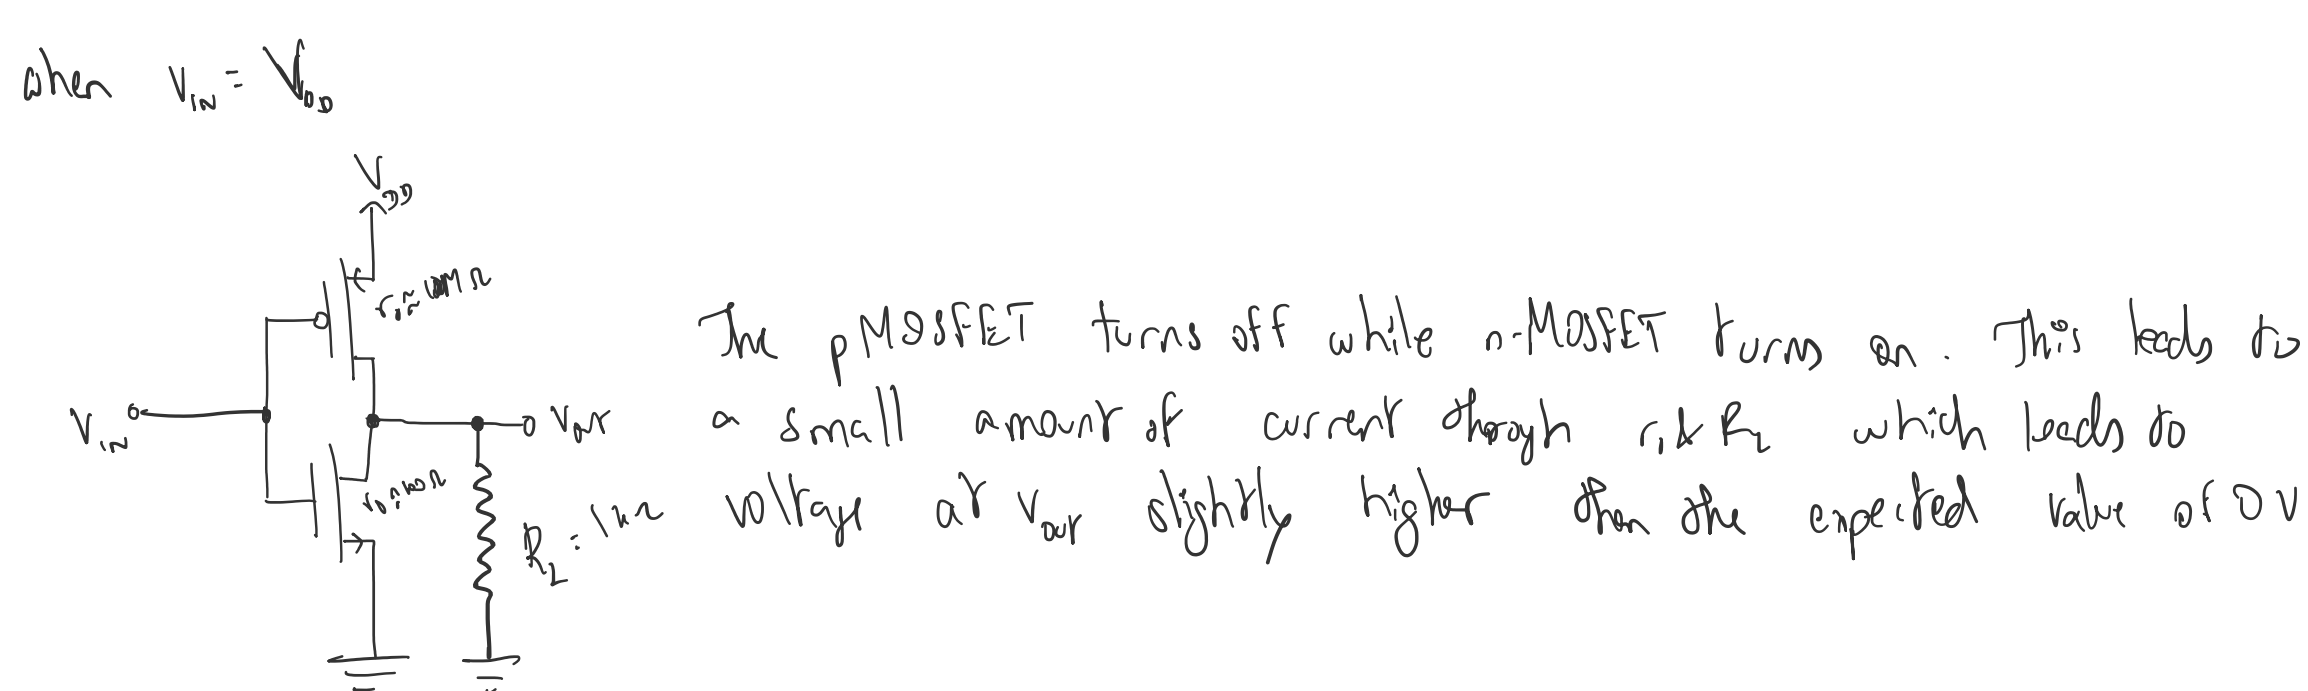 when V_IN = V_DD
V_DD
The pMOSFET turns off while n-MOSFET turns on. This leads to
V_IN
V_OUT
a small amount of current through r, & R_L which leads to
R_L = 1kΩ
voltage at V_out slightly higher than the expected value of 0V